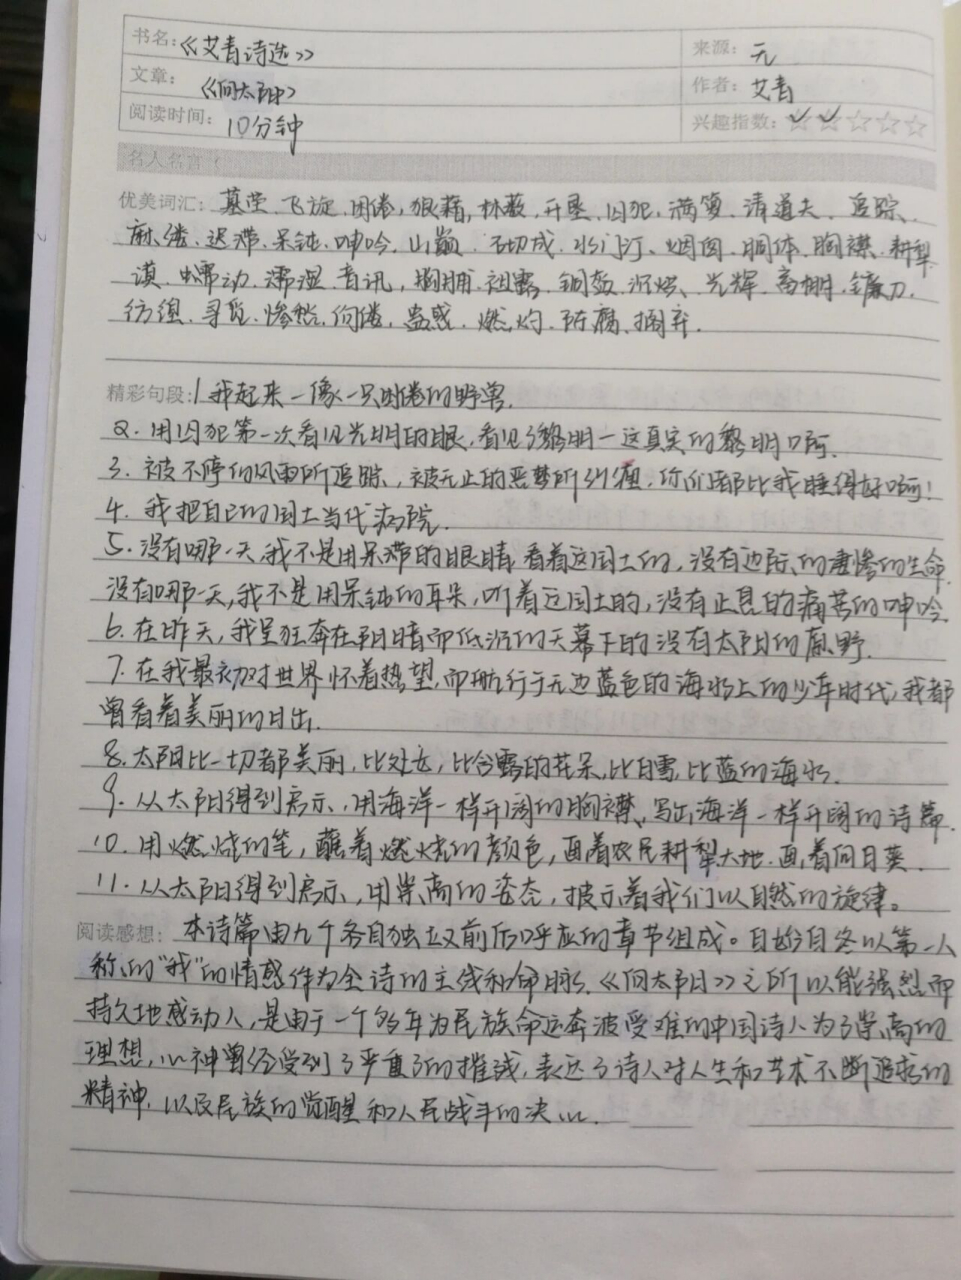 书名：《艾青诗选》 来源：无
文章：《向太阳》 作者：艾青
阅读时间：10分钟 兴趣指数：✓✓☆☆☆
名人名言：
优美词汇：墓茔、飞旋、困倦，狼藉，林薮、开垦、囚犯、满箩、清道夫、追踪、
麻缕、迟滞、呆钝、呻吟、山巅、石切成、水门汀、烟囱、胴体、胸襟、耕犁
谟、蠕动、濡湿、音讯，胸脯、袒露、钢盔、沉烬、光辉、高棚、镰刀、
彷徨、寻觅、惨愁、佝偻、蛊惑、燃灼、陈腐、捐弃、
精彩句段：1.我起来一像一只困倦的野兽.
2.用囚犯第一次看见光明的眼，看见了黎明一这真实的黎明啊.
3.被不停的风雨所追踪，被无止的恶梦所纠缠，你们都比我睡得好啊！
4.我把自己的国土当代病院.
5.没有哪一天，我不是用呆滞的眼睛，看着这国土的，没有边际的凄惨的生命.
没有哪一天，我不是用呆钝的耳朵，听着这国土的，没有止息的痛苦的呻吟.
6.在昨天，我呈狂奔在阴暗而低沉的天幕下的没有太阳的原野.
7.在我最初对世界怀着热望，而航行于无边蓝色的海水上的少年时代，我都
曾看着美丽的日出.
8.太阳比一切都美丽，比处女，比含露的花朵，比白雪，比蓝的海水.
9.从太阳得到启示，用海洋一样开阔的胸襟，写出海洋一样开阔的诗篇.
10.用燃烧的笔，蘸着燃烧的颜色，画着农民耕犁大地，画着向日葵.
11.从太阳得到启示，用崇高的姿态，披示着我们以自然的旋律。
阅读感想：本诗篇由九个各自独立又前后呼应的章节组成。自始自终以第一人
称的"我"的情感作为全诗的主线和命脉.《向太阳》之所以能强烈而
持久地感动人，是由于一个多年为民族命运奔波受难的中国诗人为了崇高的
理想，心神曾经受到了严重的摧残，表达了诗人对人生和艺术不断追求的
精神，以及民族的觉醒和人民战斗的决心.